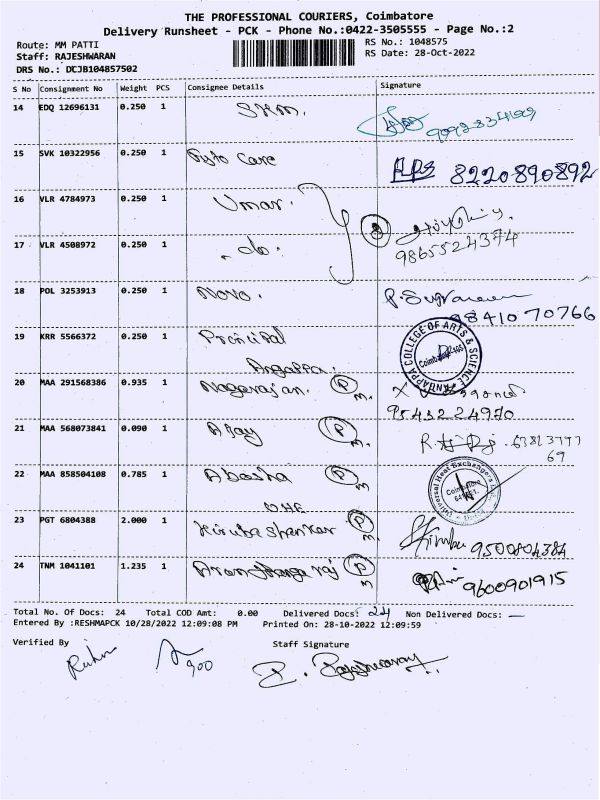 THE PROFESSIONAL COURIERS, Coimbatore
Delivery Runsheet - PCK - Phone No.:0422-3505555 - Page No.:2
Route: MM PATTI
RS No.: 1048575
Staff: RAJESHWARAN
RS Date: 28-Oct-2022
DRS No.: DCJB104857502
S No Consignment No Weight PCS Consignee Details Signature
14 EDQ 12696131 0.250 1 SKM.
15 SVK 10322956 0.250 1 Care 8220890892
16 VLR 4784973 0.250 1 Umar.
17 VLR 4508972 0.250 1 do. 9865524374
18 POL 3253913 0.250 1 Novo.
9841070766
19 KRR 5566372 0.250 1 COLLEGE OF ARTS & SCIENCE
20 MAA 291568386 0.935 1 Nagarajan. P M.
21 MAA 568073841 0.090 1 Ajay P M.
69
22 MAA 858504108 0.785 1 Abasha P M Universal Heat Exchangers Coimbatore
23 PGT 6804388 2.000 1 Kirubashankar P M 9500804384
24 TNM 1041101 1.235 1 P M 9600901915
Total No. Of Docs: 24 Total COD Amt: 0.00 Delivered Docs: 24 Non Delivered Docs: —
Entered By :RESHMAPCK 10/28/2022 12:09:08 PM Printed On: 28-10-2022 12:09:59
Verified By Staff Signature
900